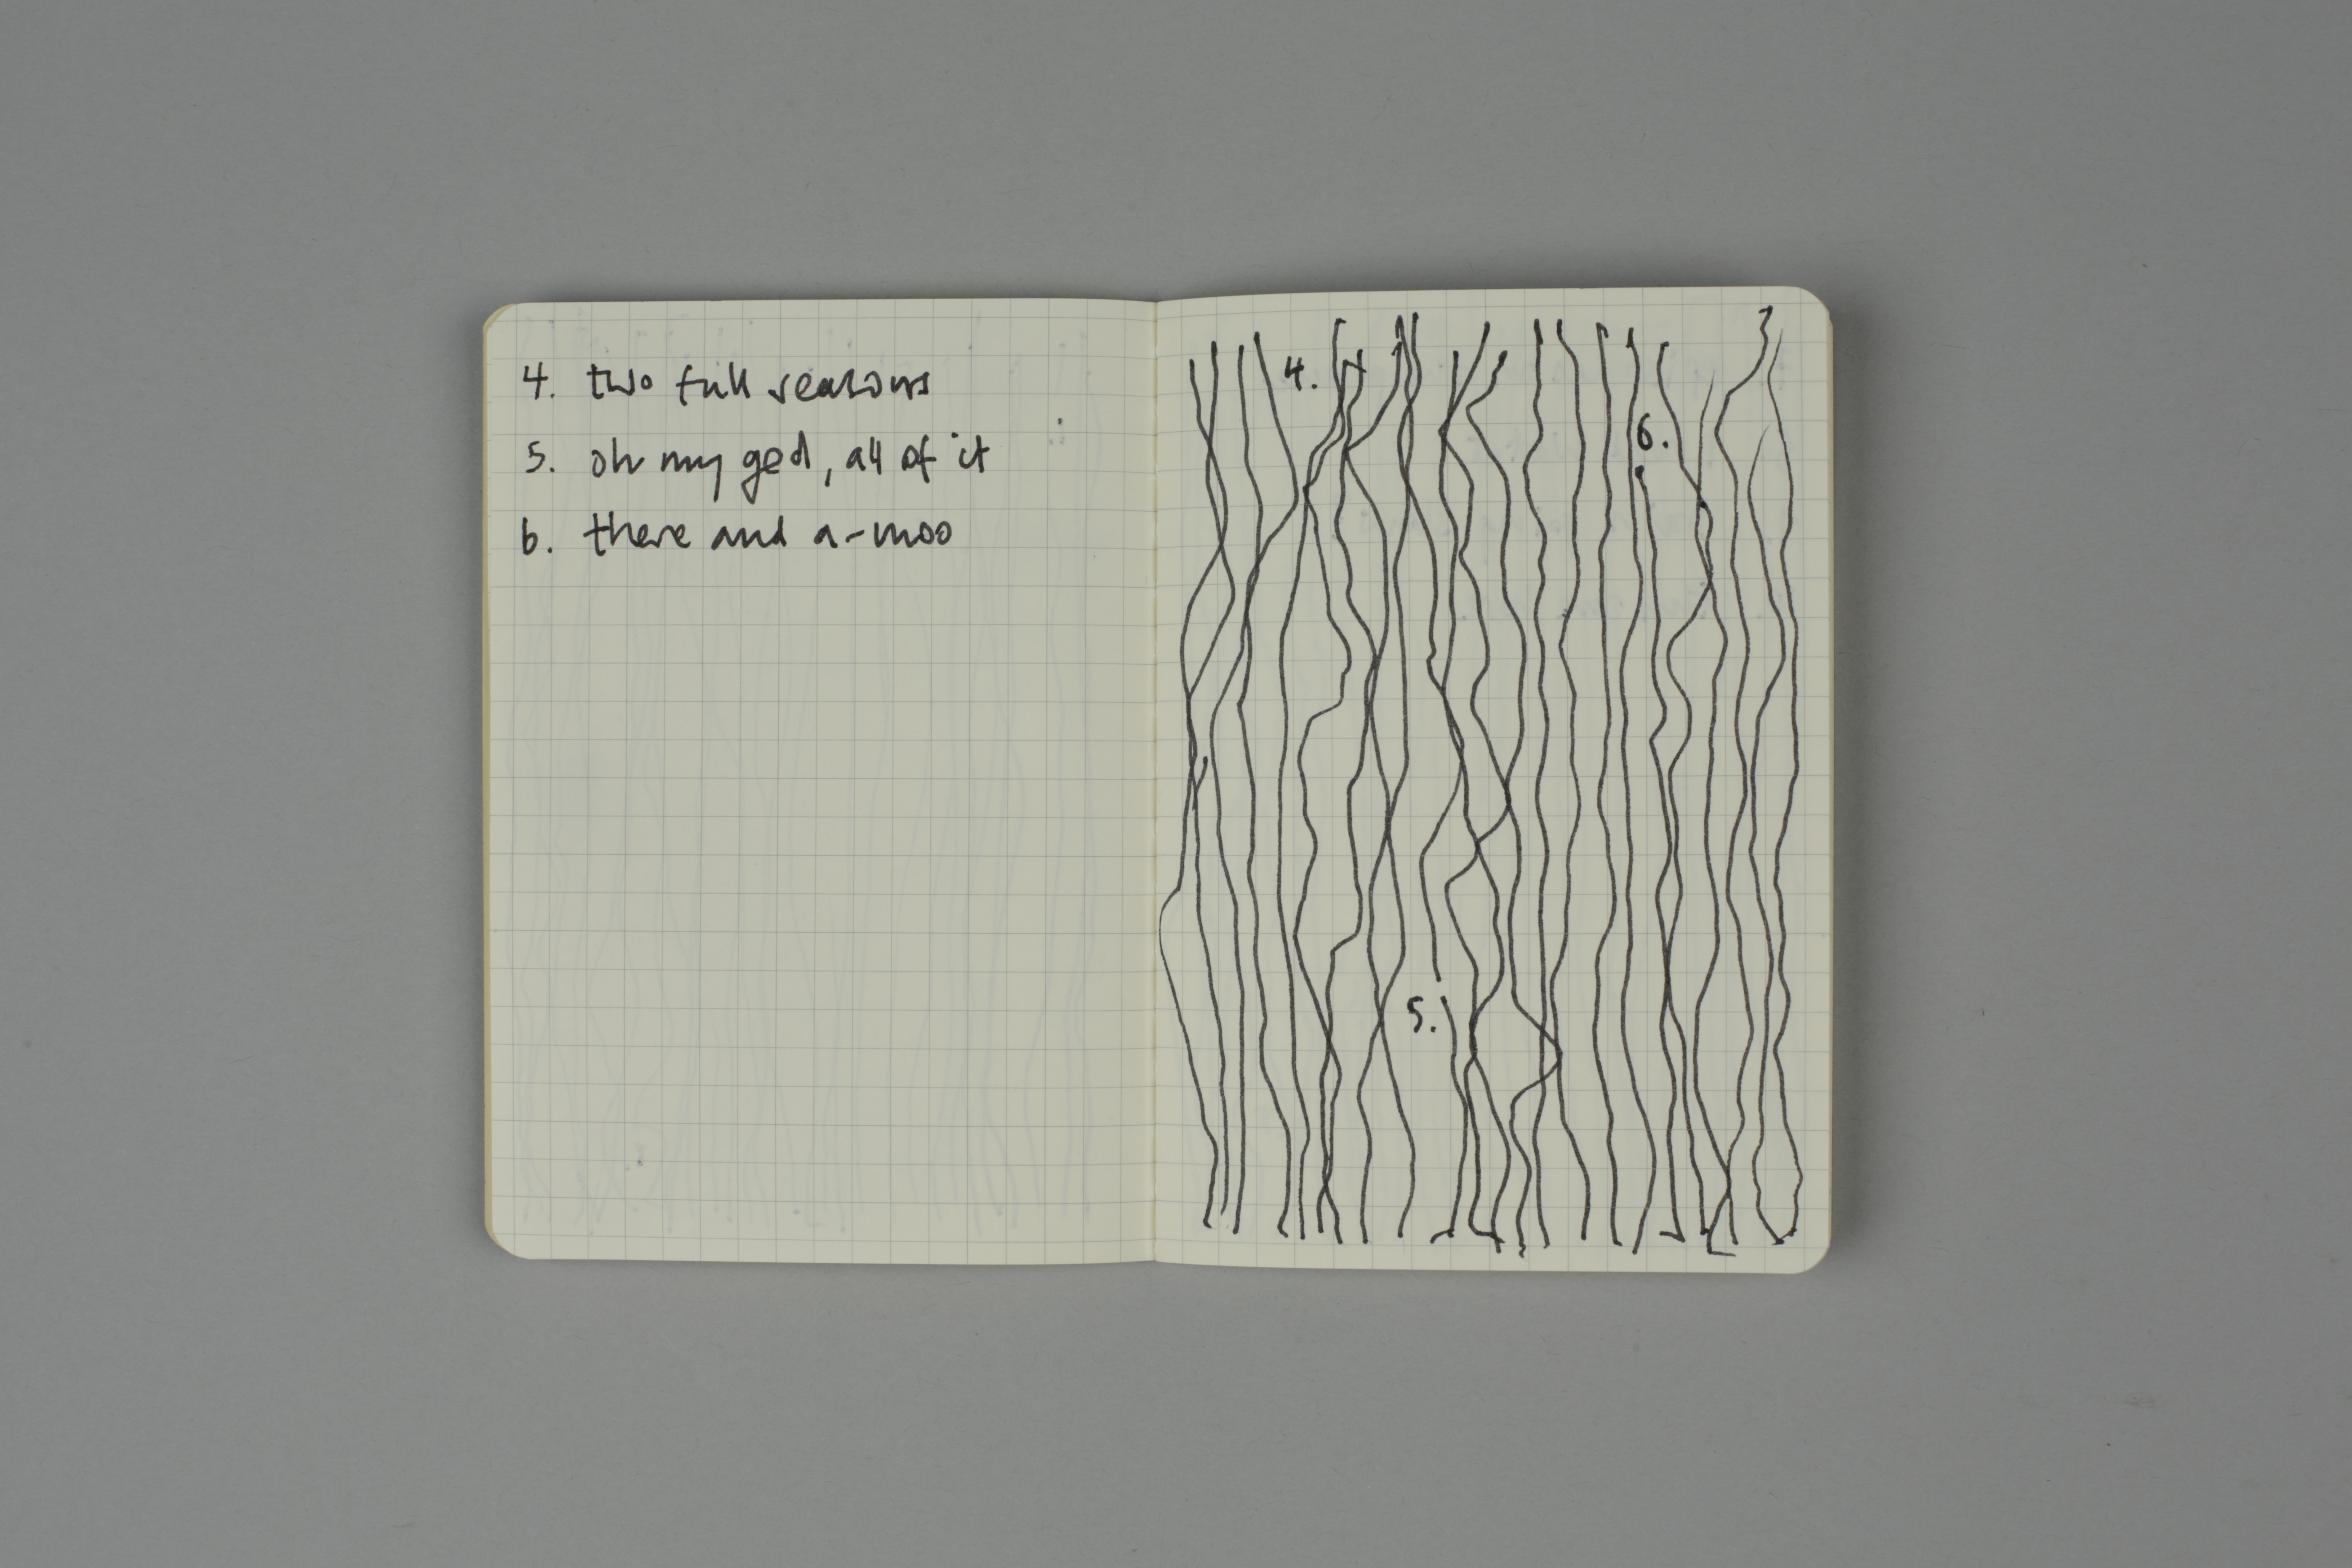 4. two full reasons
5. oh my god, all of it
6. there and a-moo
4.
6.
5.